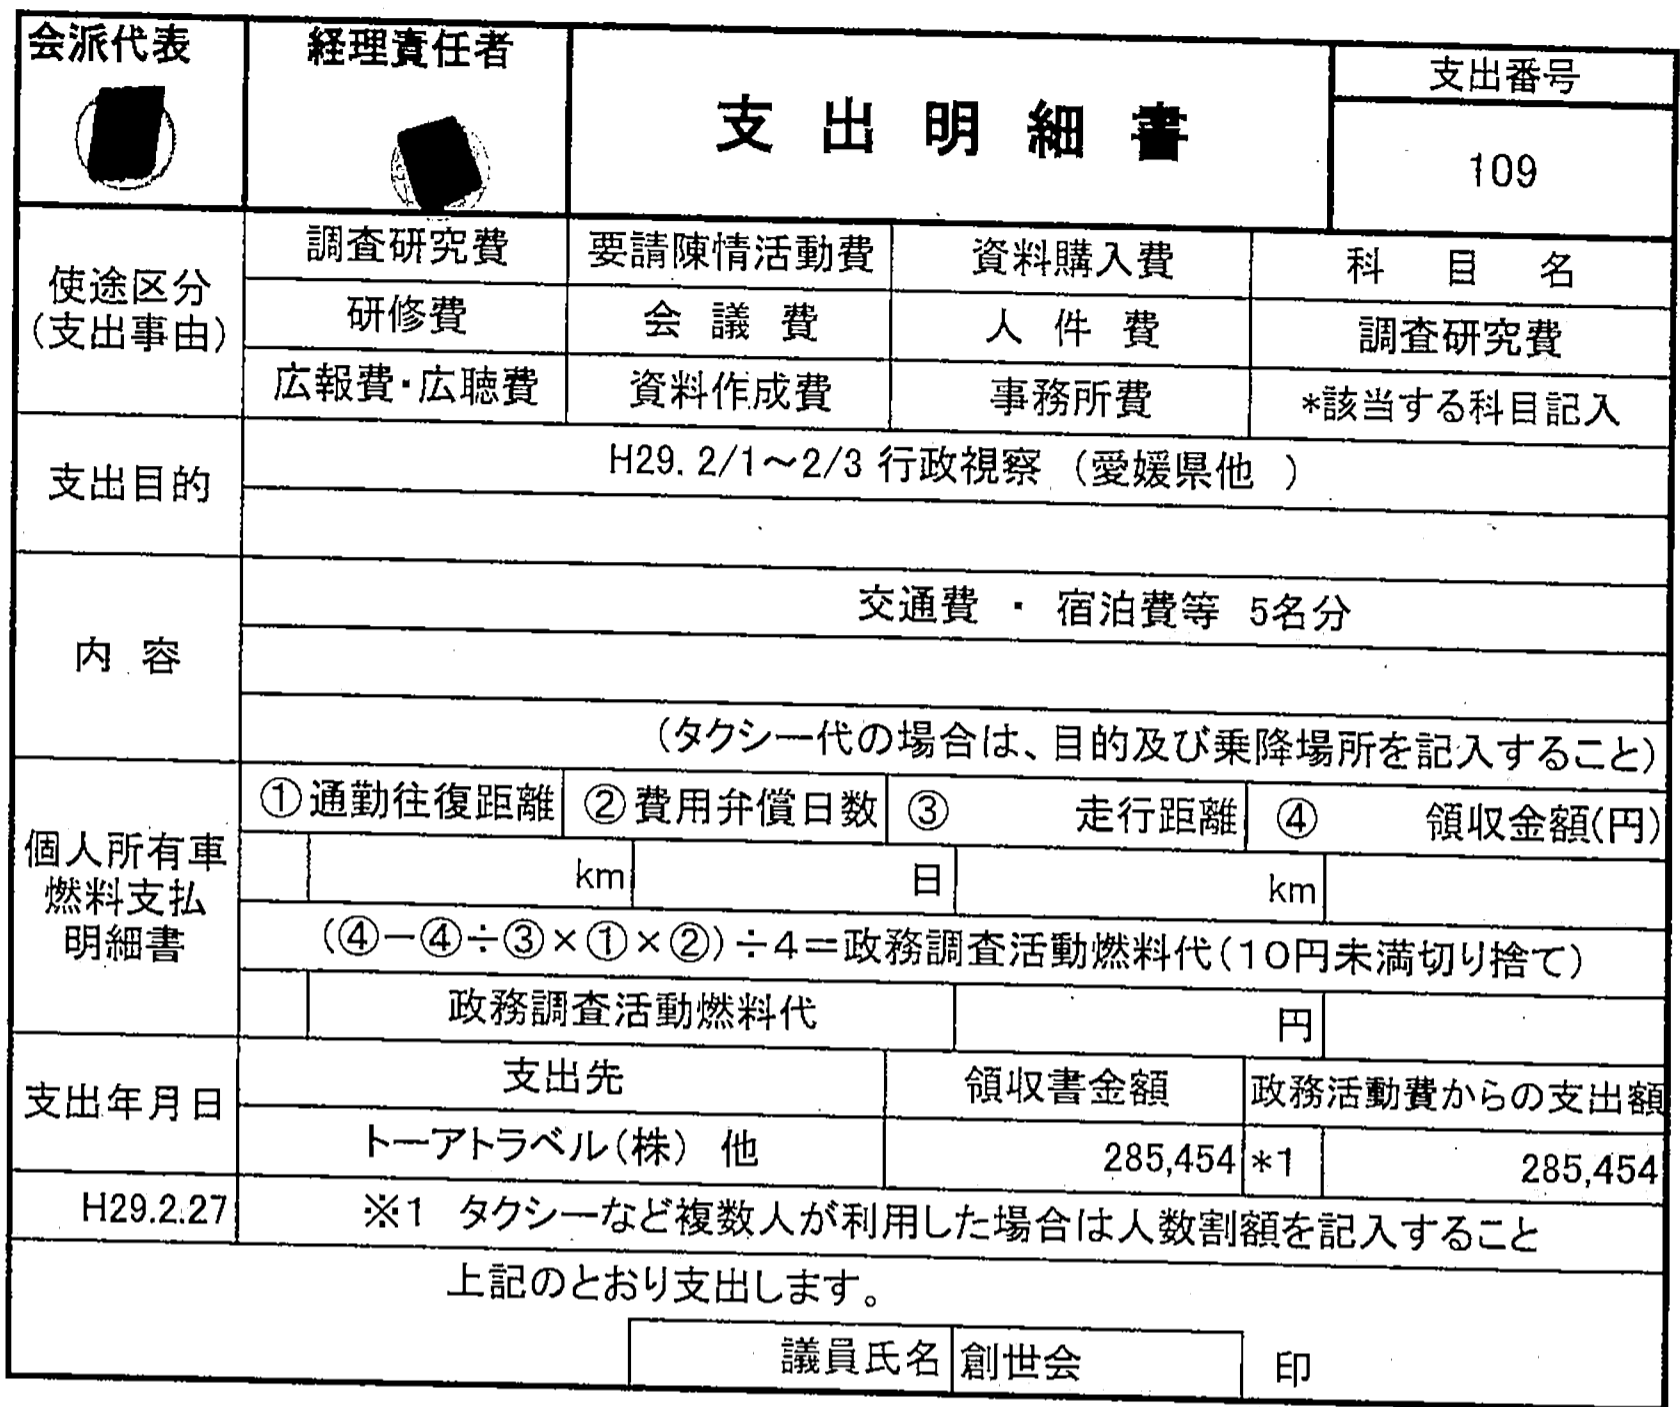 会派代表 経理責任者 支出明細書 支出番号
109
使途区分
(支出事由)
調査研究費 要請陳情活動費 資料購入費 科目名
研修費 会議費 人件費 調査研究費
広報費・広聴費 資料作成費 事務所費 *該当する科目記入
支出目的 H29.2/1～2/3 行政視察 (愛媛県他 )
内容 交通費 ・ 宿泊費等 5名分
(タクシー代の場合は、目的及び乗降場所を記入すること)
個人所有車
燃料支払
明細書
①通勤往復距離 ②費用弁償日数 ③ 走行距離 ④ 領収金額(円)
km 日 km
(④－④÷③×①×②)÷4＝政務調査活動燃料代(10円未満切り捨て)
政務調査活動燃料代 円
支出年月日 支出先 領収書金額 政務活動費からの支出額
トーアトラベル(株) 他 285,454 *1 285,454
H29.2.27 ※1 タクシーなど複数人が利用した場合は人数割額を記入すること
上記のとおり支出します。
議員氏名 創世会 印